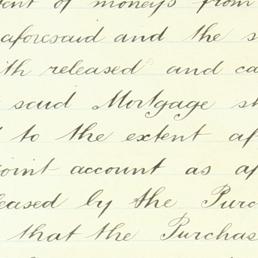 ent of moneys from
aforesaid and the s
ith released and ca
said Mortgage s
to the extent af
oint account as af
leased by the Purc
that the Purchas